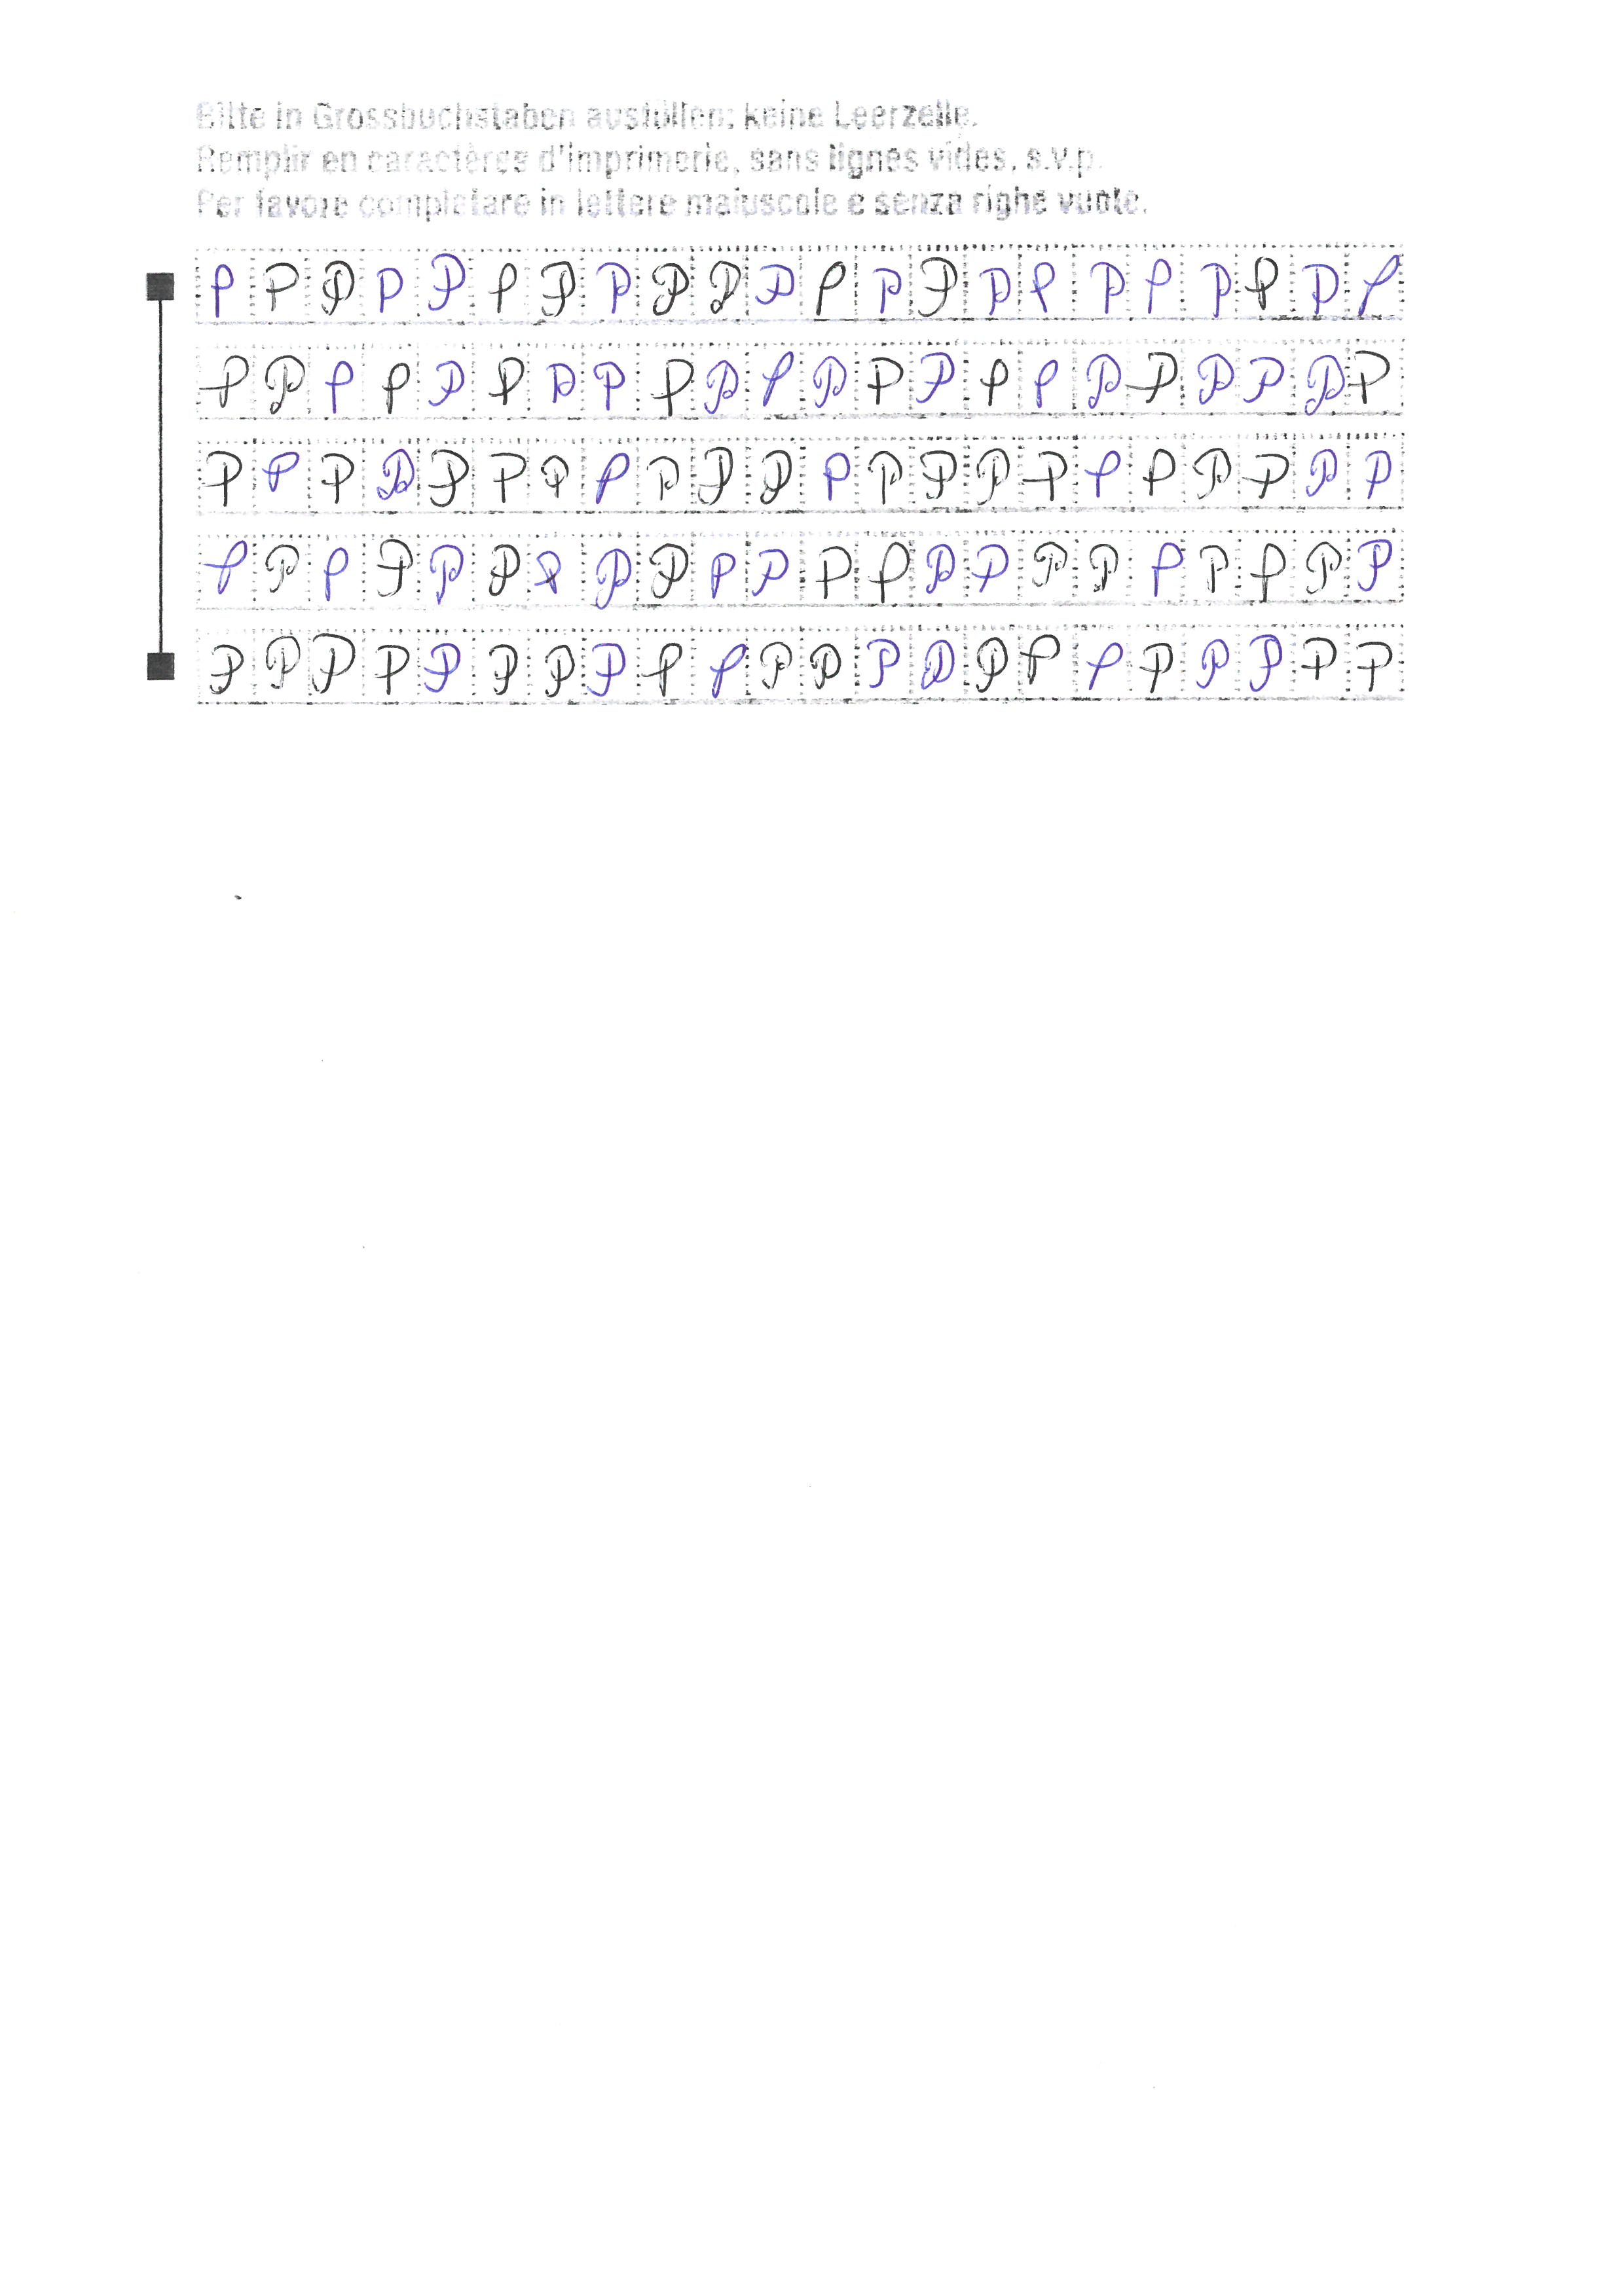 Bitte in Grossbuchstaben ausfüllen; keine Leerzeile.
Remplir en caractères d'imprimerie, sans lignes vides, s.v.p.
Per favore completare in lettere maiuscole e senza righe vuote.
P P P P P P P P P P P P P P P P P P P P P P
P P P P P P P P P P P P P P P P P P P P P P
P P P P P P P P P P P P P P P P P P P P P P
P P P P P P P P P P P P P P P P P P P P P P
P P P P P P P P P P P P P P P P P P P P P P